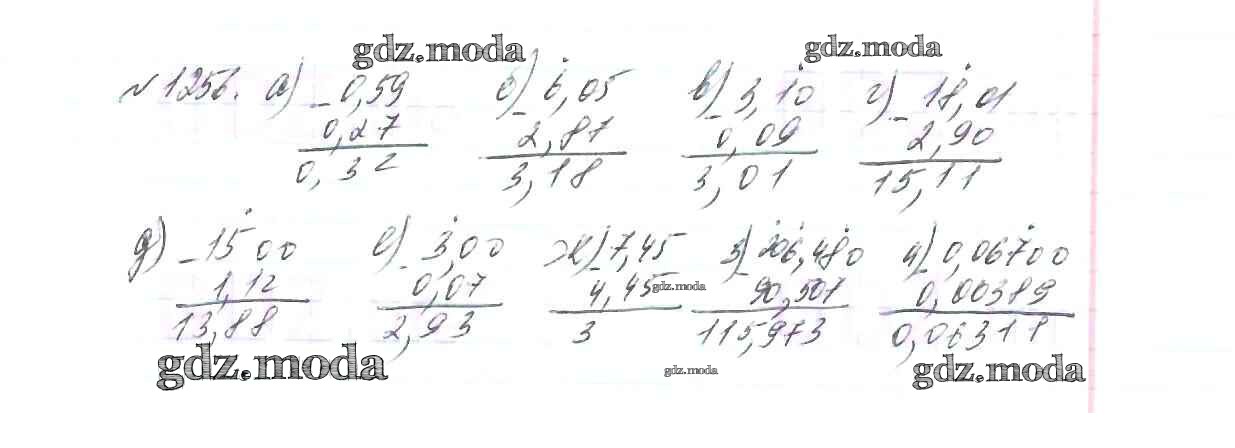 gdz.moda gdz.moda
№1256. а) -0,59 б) -6,05 в) -3,10 г) -18,01
0,27 2,87 0,09 2,90
0,32 3,18 3,01 15,11
д) -15 00 е) -3,00 ж) -7,45 з) -206,480 и) -0,06700
1,12 0,07 4,45 gdz.moda 90,507 0,00389
13,88 2,93 3 115,973 0,06311
gdz.moda gdz.moda gdz.moda